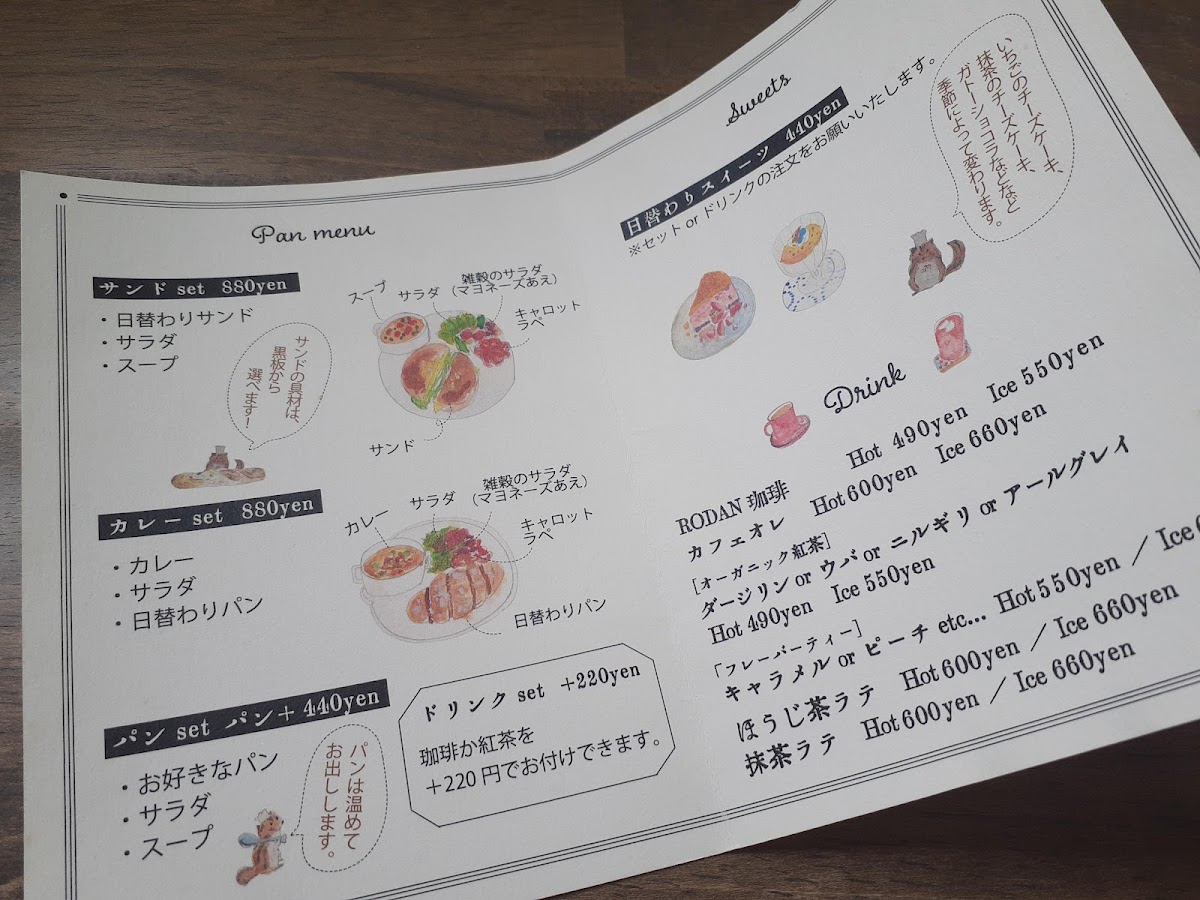 Pan menu
サンド set 880yen
・日替わりサンド
・サラダ
・スープ
サンドの具材は、
黒板から
選べます!
スープ
サラダ
雑穀のサラダ
(マヨネーズあえ)
キャロット
ラペ
サンド
カレー set 880yen
・カレー
・サラダ
・日替わりパン
カレー
サラダ
雑穀のサラダ
(マヨネーズあえ)
キャロット
ラペ
日替わりパン
パン set パン+440yen
・お好きなパン
・サラダ
・スープ
パンは温めて
お出しします。
ドリンク set +220yen
珈琲か紅茶を
+220円でお付けできます。
Sweets
日替わりスイーツ 440yen
※セット or ドリンクの注文をお願いいたします。
いちごのチーズケーキ、
抹茶のチーズケーキ、
ガトーショコラなどなど
季節によって変わります。
Drink
RODAN 珈琲 Hot 490yen Ice 550yen
カフェオレ Hot 600yen Ice 660yen
[オーガニック紅茶]
ダージリン or ウバ or ニルギリ or アールグレイ
Hot 490yen Ice 550yen
「フレーバーティー]
キャラメル or ピーチ etc... Hot 550yen / Ice
ほうじ茶ラテ Hot 600yen / Ice 660yen
抹茶ラテ Hot 600yen / Ice 660yen